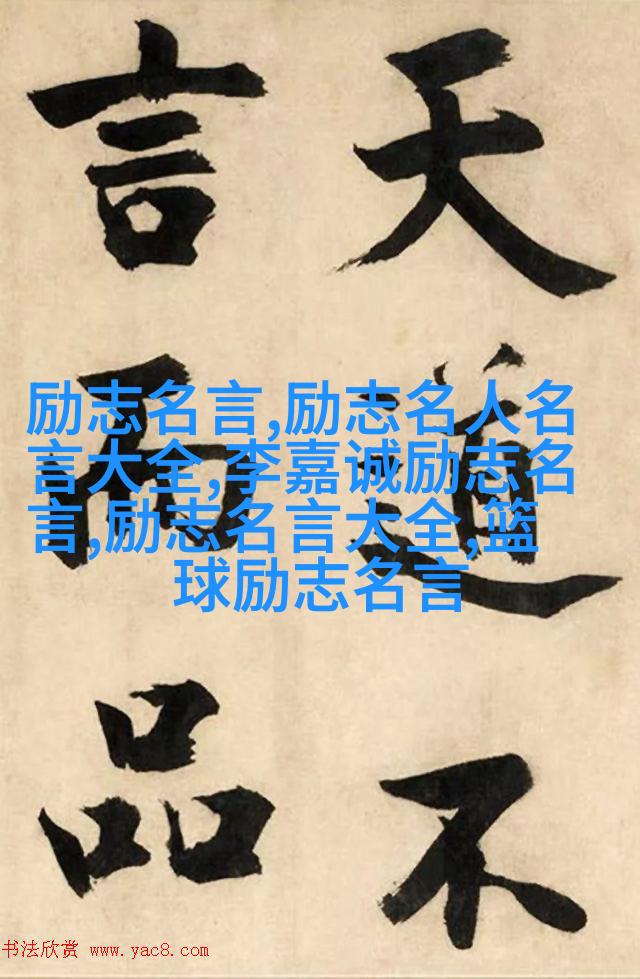 天道不
言而品
励志名言,励志名人名
言大全,李嘉诚励志名
言,励志名言大全,篮
球励志名言
书法欣赏 www.yac8.com